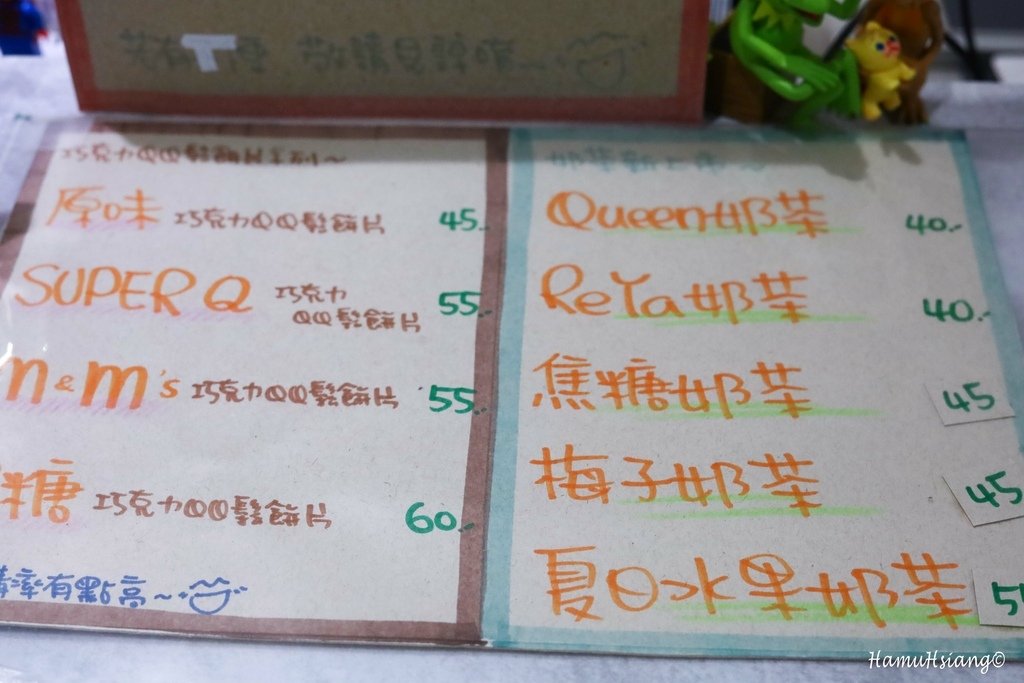 巧克力QQ鬆餅片系列~
原味 巧克力QQ鬆餅片 45.-
SUPER Q 巧克力
QQ鬆餅片 55.-
m&m's 巧克力QQ鬆餅片 55.-
糖 巧克力QQ鬆餅片 60.-
率有點高~
奶茶新上市~
Queen奶茶 40.-
ReYa奶茶 40.-
焦糖奶茶 45
梅子奶茶 45
夏日水果奶茶
HamuHsiang©